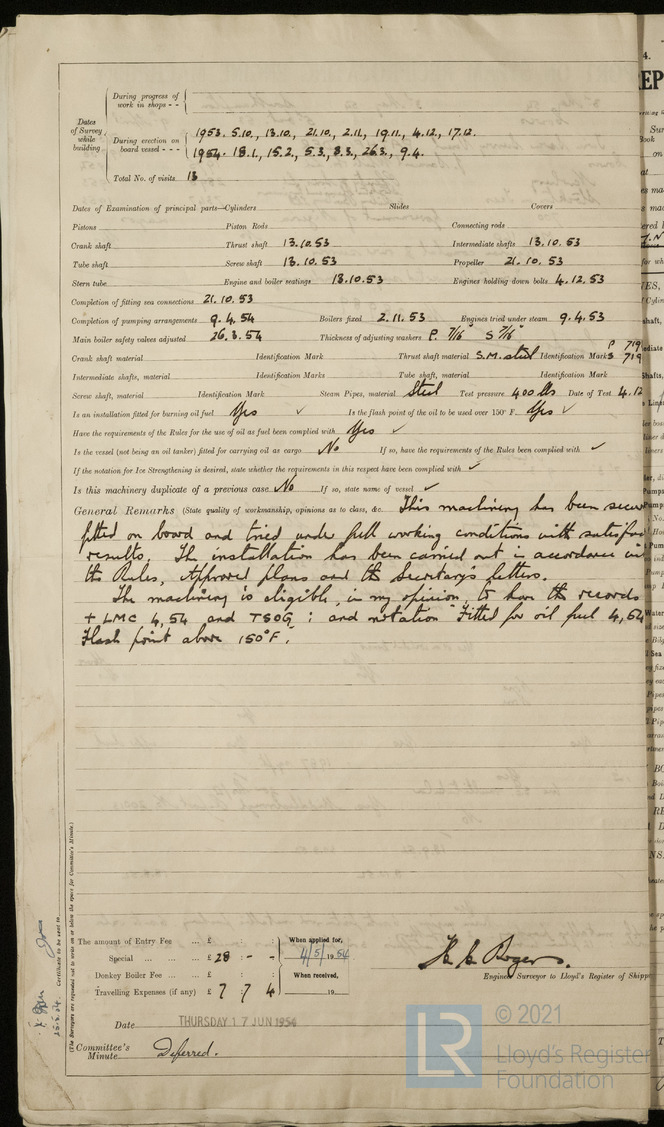 During progress of work in shops - -
Dates of Survey while building
During erection on board vessel - - -
1953. 5.10., 13.10., 21.10., 2.11., 19.11., 4.12., 17.12.
1954. 18.1., 15.2., 5.3., 8.3., 26.3., 9.4.
Total No. of visits 13
Dates of Examination of principal parts—Cylinders Slides Covers
Pistons Piston Rods Connecting rods
Crank shaft Thrust shaft 13.10.53 Intermediate shafts 13.10.53
Tube shaft Screw shaft 13.10.53 Propeller 21.10.53
Stern tube Engine and boiler seatings 13.10.53 Engines holding down bolts 4.12.53
Completion of fitting sea connections 21.10.53
Completion of pumping arrangements 9.4.54 Boilers fixed 2.11.53 Engines tried under steam 9.4.53
Main boiler safety valves adjusted 26.3.54 Thickness of adjusting washers P. 7/16" S 7/16"
Crank shaft material Identification Mark Thrust shaft material S.M. steel Identification Mark P 719 S 719
Intermediate shafts, material Identification Marks Tube shaft, material Identification Mark
Screw shaft, material Identification Mark Steam Pipes, material Steel Test pressure 400 lbs Date of Test 4.12
Is an installation fitted for burning oil fuel Yes ✓ Is the flash point of the oil to be used over 150° F. Yes ✓
Have the requirements of the Rules for the use of oil as fuel been complied with Yes ✓
Is the vessel (not being an oil tanker) fitted for carrying oil as cargo No If so, have the requirements of the Rules been complied with ✓
If the notation for Ice Strengthening is desired, state whether the requirements in this respect have been complied with ✓
Is this machinery duplicate of a previous case No If so, state name of vessel ✓
General Remarks (State quality of workmanship, opinions as to class, &c. This machinery has been secur
fitted on board and tried under full working conditions with satisfac
results. The installation has been carried out in accordance wit
the Rules, Approved plans and the Secretary's letters.
The machinery is eligible, in my opinion, to have the records
+ LMC 4,54 and TSOG; and notation "Fitted for oil fuel 4,54
Flash point above 150°F.
The amount of Entry Fee ... £ : :
Special ... ... ... £ 28 : - -
Donkey Boiler Fee ... ... £ : :
Travelling Expenses (if any) £ 7 7 4
When applied for,
4/5/1954
When received,
19
H. C. Rogers.
Engineer Surveyor to Lloyd's Register of Shipp
Date THURSDAY 17 JUN 1954
Committee's Minute Deferred.
(The Surveyors are requested not to write on or below the space for Committee's Minute.)
Certificate to be sent to
© 2021
Lloyd's Register
Foundation
LR